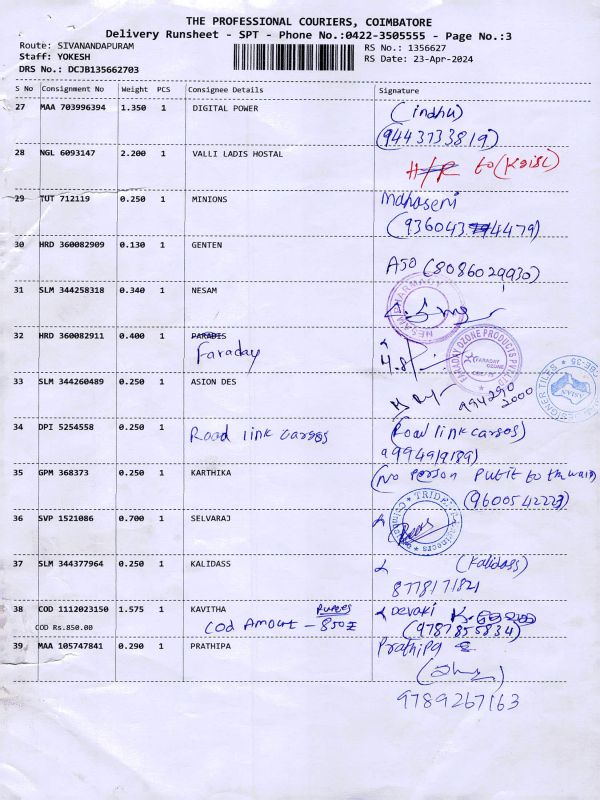 THE PROFESSIONAL COURIERS, COIMBATORE
Delivery Runsheet - SPT - Phone No.:0422-3505555 - Page No.:3
Route: SIVANANDAPURAM
RS No.: 1356627
Staff: YOKESH
RS Date: 23-Apr-2024
DRS No.: DCJB135662703
S No Consignment No Weight PCS Consignee Details Signature
27 MAA 703996394 1.350 1 DIGITAL POWER (indhu)
(9443733819)
28 NGL 6093147 2.200 1 VALLI LADIS HOSTAL to
29 TUT 712119 0.250 1 MINIONS Mahaseni
30 HRD 360082909 0.130 1 GENTEN
(8086029930)
31 SLM 344258318 0.340 1 NESAM
32 HRD 360082911 0.400 1 PARADIS
Faraday
FARADAY OZONE PRODUCTS PVT LTD
FARADAY OZONE
33 SLM 344260489 0.250 1 ASION DES
994290
2000
34 DPI 5254558 0.250 1 Road link cargos (Road link cargos)
35 GPM 368373 0.250 1 KARTHIKA (No person put it to the
36 SVP 1521086 0.700 1 SELVARAJ
37 SLM 344377964 0.250 1 KALIDASS (Kalidass)
8778171821
38 COD 1112023150 1.575 1 KAVITHA Rupees Devaki
COD Rs.850.00 Cod Amount - 850 (9787855834)
39 MAA 105747841 0.290 1 PRATHIPA Prathipa
9789267163